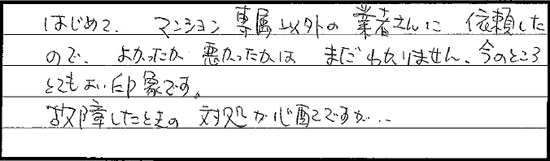 はじめて、マンション専属以外の業者さんに依頼した
ので、よかったか悪かったかは まだわかりません。今のところ
とてもよい印象です。
故障したときの対処が心配ですが…